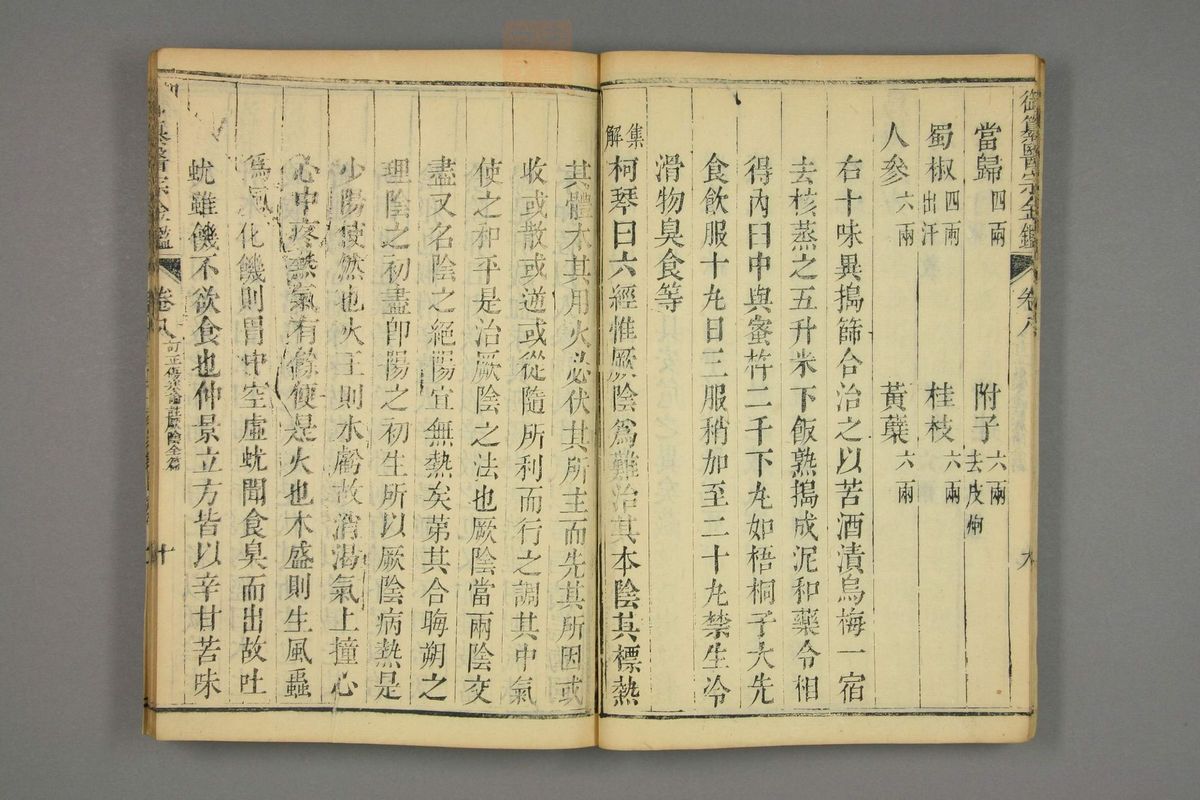 御纂醫宗金鑑 卷八 九
當歸四兩 附子六兩去皮炮
蜀椒四兩出汗 桂枝六兩
人參六兩 黃蘗六兩
右十味異搗篩合治之以苦酒漬烏梅一宿
去核蒸之五升米下飯熟搗成泥和藥令相
得內臼中與蜜杵二千下丸如梧桐子大先
食飲服十丸日三服稍加至二十丸禁生冷
滑物臭食等
集解柯琴曰六經惟厥陰爲難治其本陰其標熱
其體木其用火必伏其所主而先其所因或
收或散或逆或從隨所利而行之調其中氣
使之和平是治厥陰之法也厥陰當兩陰交
盡又名陰之絕陽宜無熱矣第其合晦朔之
理陰之初盡卽陽之初生所以厥陰病熱是
少陽使然也火王則水虧故消渴氣上撞心
心中疼熱氣有餘便是火也木盛則生風蟲
爲風化饑則胃中空虛蚘聞食臭而出故吐
蚘雖饑不欲食也仲景立方皆以辛甘苦味
纂醫宗金鑑 卷八 訂正傷寒論註厥陰全篇 十